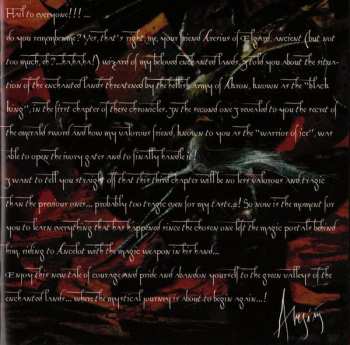 Hail to everyone!!! ...
do you rememberme? Yes, that's right, me, your friend Aresius of Elgard, ancient (but not
too much, eh?...hahaha!) wizard of my beloved enchanted lands. I told you about the situa-
tion of the enchanted lands threatened by the hellish army of Akron, known as the "black
king", in the first chapter of these chronicles. In the second one I revealed to you the secret of
the emerald sword and how my valorous friend, known to you as the "warrior of ice", was
able to open the ivory gates and to finally handle it!
I want to tell you straight off that this third chapter will be no less valorous and tragic
than the previous ones... probably too tragic even for my tastes.! So now is the moment for
you to learn everything that has happened since the chosen one left the magic portals behind
him, riding to Ancelot with the magic weapon in his hand...
Enjoy this new tale of courage and pride and abandon yourself to the green valleys of the
enchanted lands... where the mystical journey is about to begin again...!
Aresius